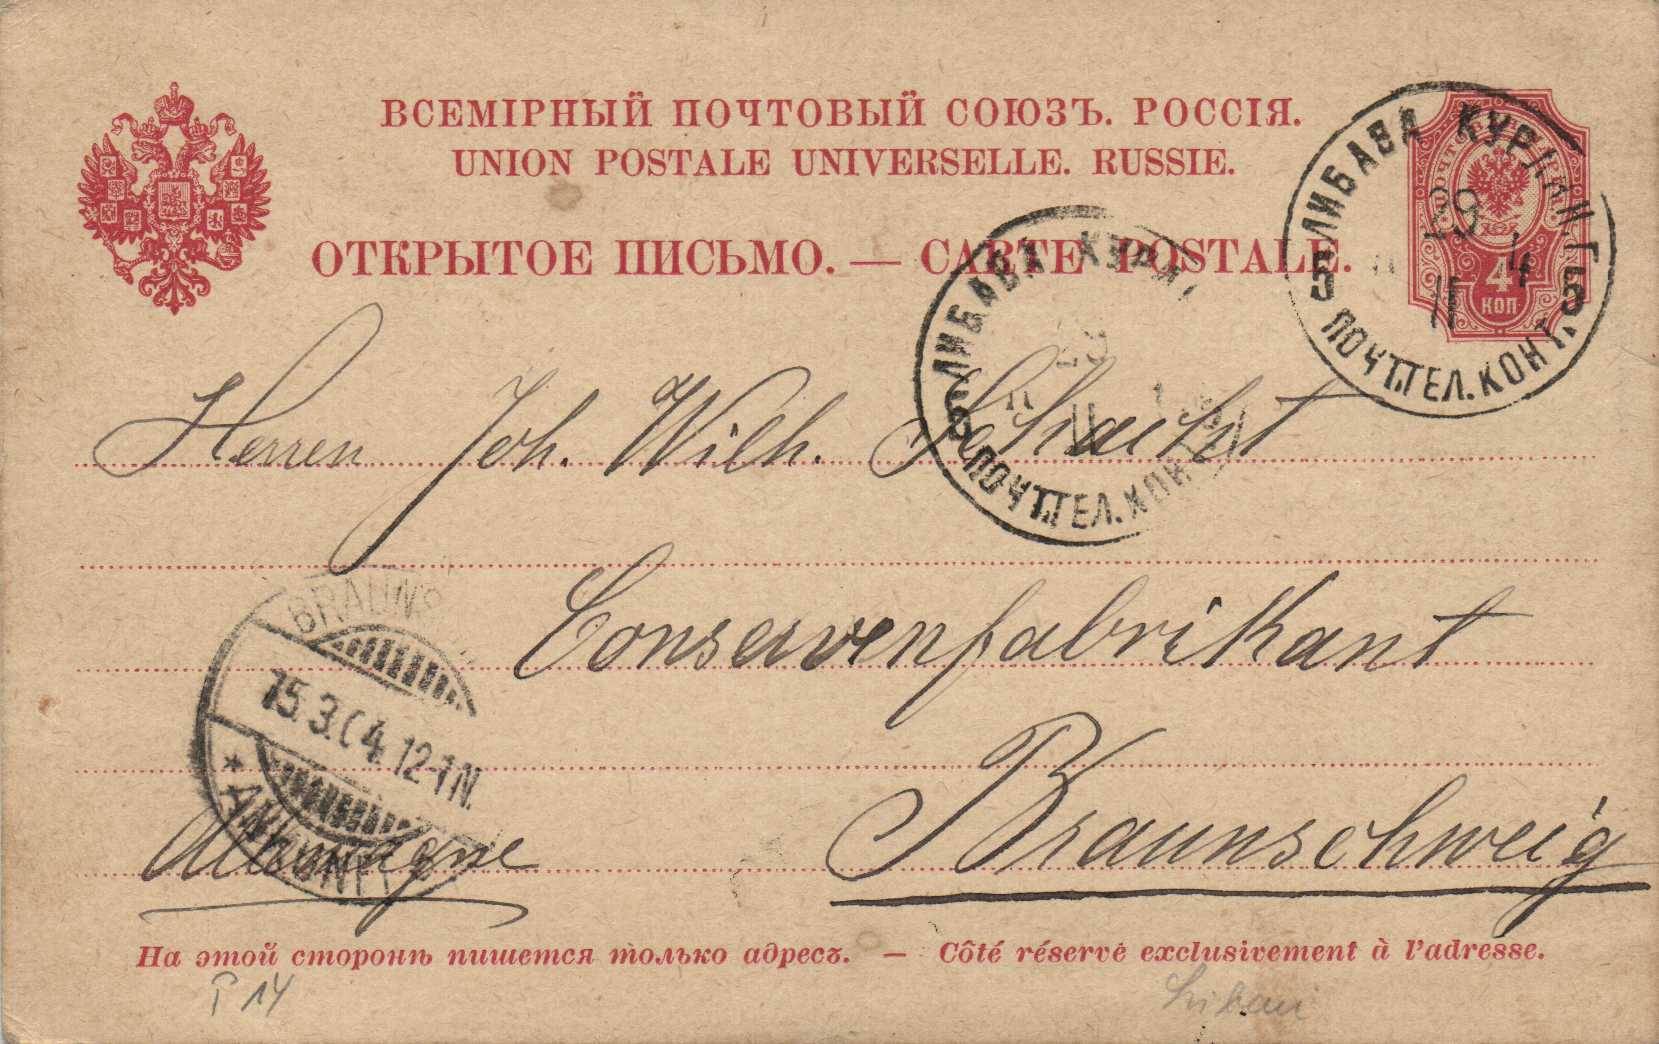 ВСЕМІРНЫЙ ПОЧТОВЫЙ СОЮЗЪ. РОССІЯ.
UNION POSTALE UNIVERSELLE. RUSSIE.
ОТКРЫТОЕ ПИСЬМО. — CARTE POSTALE.
4
КОП
ЛИБАВА КУРЛ
29
II
5 5
ПОЧТ.ТЕЛ.КОНТ.
ЛИБАВА КУРЛ
II
ПОЧТ.ТЕЛ.КОНТ
Herren Joh. Wilh. Schacht
Conservenfabrikant
BRAUNS
15.3.04.12-1N.
* ANKUNFT
Braunschweig
Allemagne
На этой сторонѣ пишется только адресъ. — Côté réservé exclusivement à l'adresse.
14
Libau